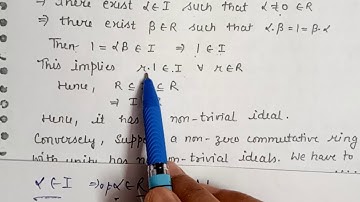 ⇒ there exist α∈I such that α≠0 ∈R
⇒ there exist β∈R such that α.β=1=β.α
Then 1=αβ∈I ⇒ 1∈I
This implies r.1∈I ∀ r∈R
Hence, R⊆ ⊆R
⇒ I
Hence, it has non-trivial ideal.
Conversely, Suppose a non-zero commutative ring
with unity has non-trivial ideals. We have to
α∈I ⇒ α∈R